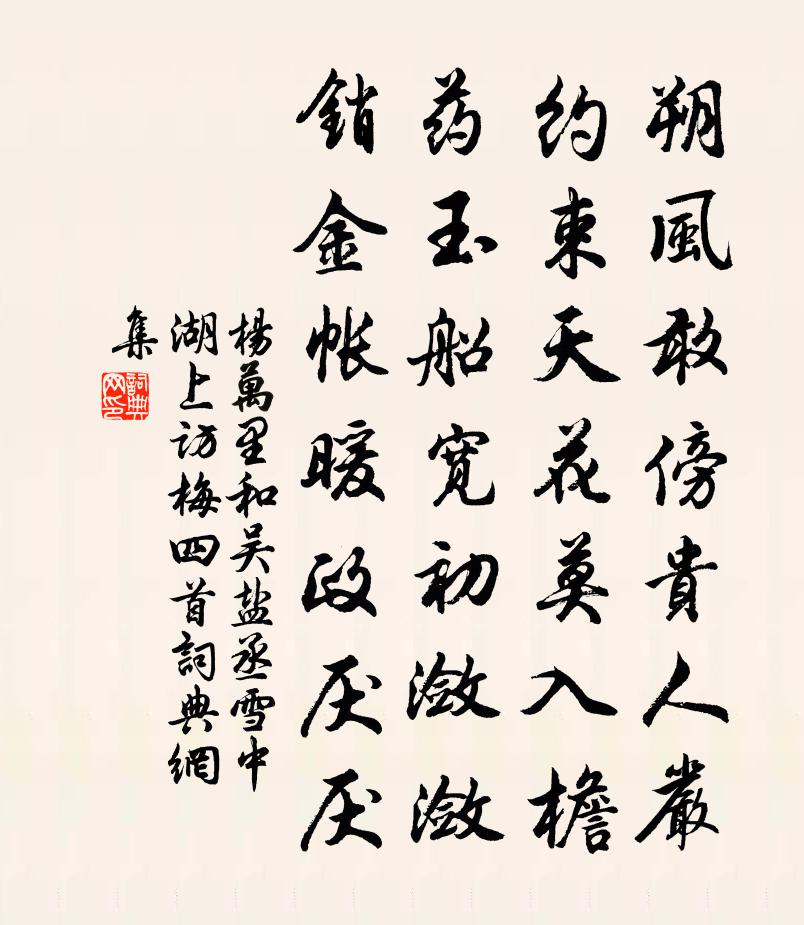 朔風敢傍貴人嚴
約束天花莫入檐
药玉船宽初潋潋
銷金帐暖政厌厌
楊萬里和吴盐丞雪中
湖上访梅四首詞典網
集
詞典
网印